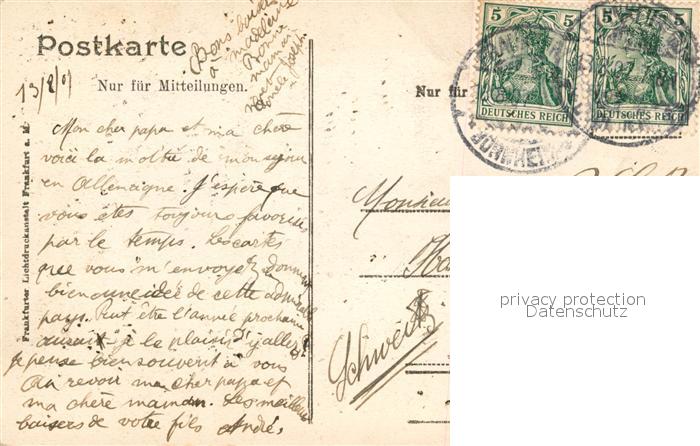 Postkarte
Bons baisers
à madeleine
Bonne
maman
oncle Joseph
13/8/07
Nur für Mitteilungen.
Nur für
Mon cher papa et ma chère
voici la moitié de mon séjour
en Allemagne. J'espère que
vous êtes toujours favorisé
par le temps. Les cartes
que vous m'envoyez donnent
bien une idée de cette admirable
pays. Peut être l'année prochaine
aurait je le plaisir d'y aller!
Je pense bien souvent à vous
Au revoir mon cher papa et
ma chère maman. Les meilleurs
baisers de votre fils André.
Frankfurter Lichtdruckanstalt Frankfurt a. M.
5 5
DEUTSCHES REICH
5 5
DEUTSCHES REICH
Monsieur
Schweiz
privacy protection
Datenschutz